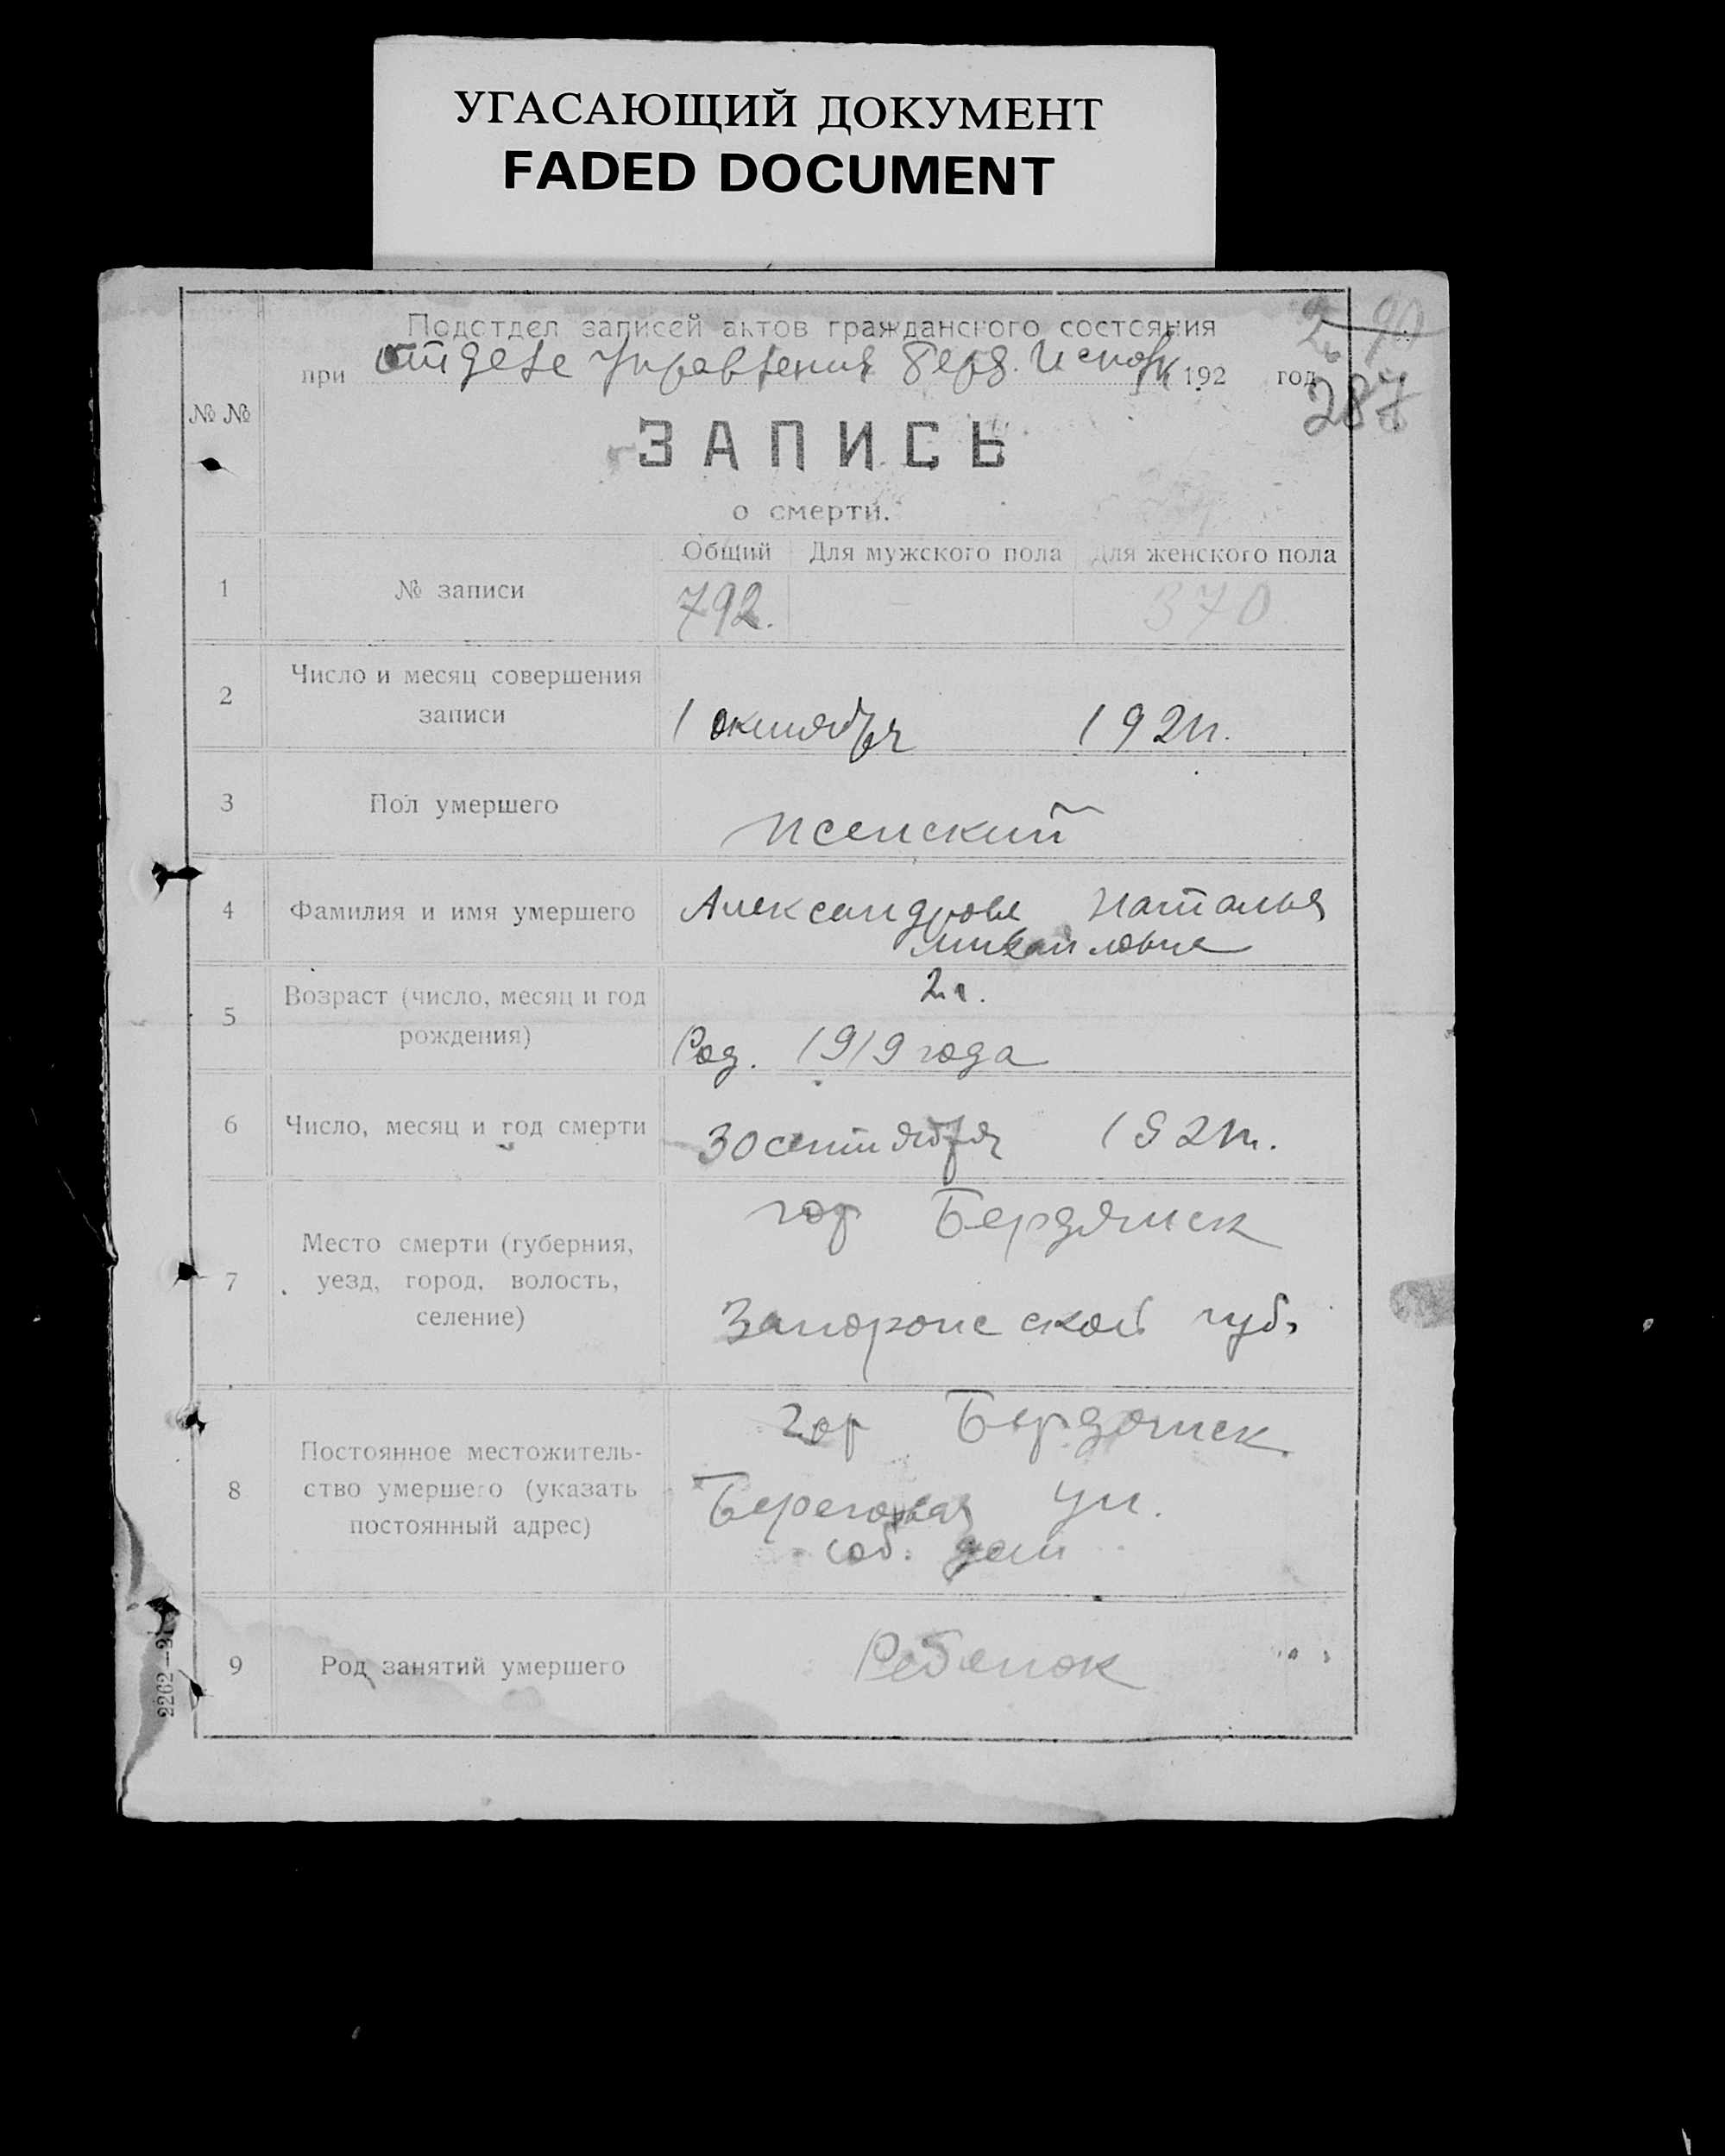 УГАСАЮЩИЙ ДОКУМЕНТ
FADED DOCUMENT
287
Подотдел записей актов гражданского состояния
при отделе Управления Берд. Исполк 192 год
№ №
ЗАПИСЬ
о смерти.
Общий Для мужского пола Для женского пола
1 № записи 792. – 370
2 Число и месяц совершения
записи
1 октября 1921г.
3 Пол умершего женский
4 Фамилия и имя умершего Александрова Наталья
Михайловна
5 Возраст (число, месяц и год
рождения)
2 г.
Род. 1919 года
6 Число, месяц и год смерти 30 сентября 1921г.
7 Место смерти (губерния,
уезд, город, волость,
селение)
гор Бердянск
Запорожской губ.
8 Постоянное местожитель-
ство умершего (указать
постоянный адрес)
гор Бердянск
Береговая ул.
соб. дом
9 Род занятий умершего Ребенок